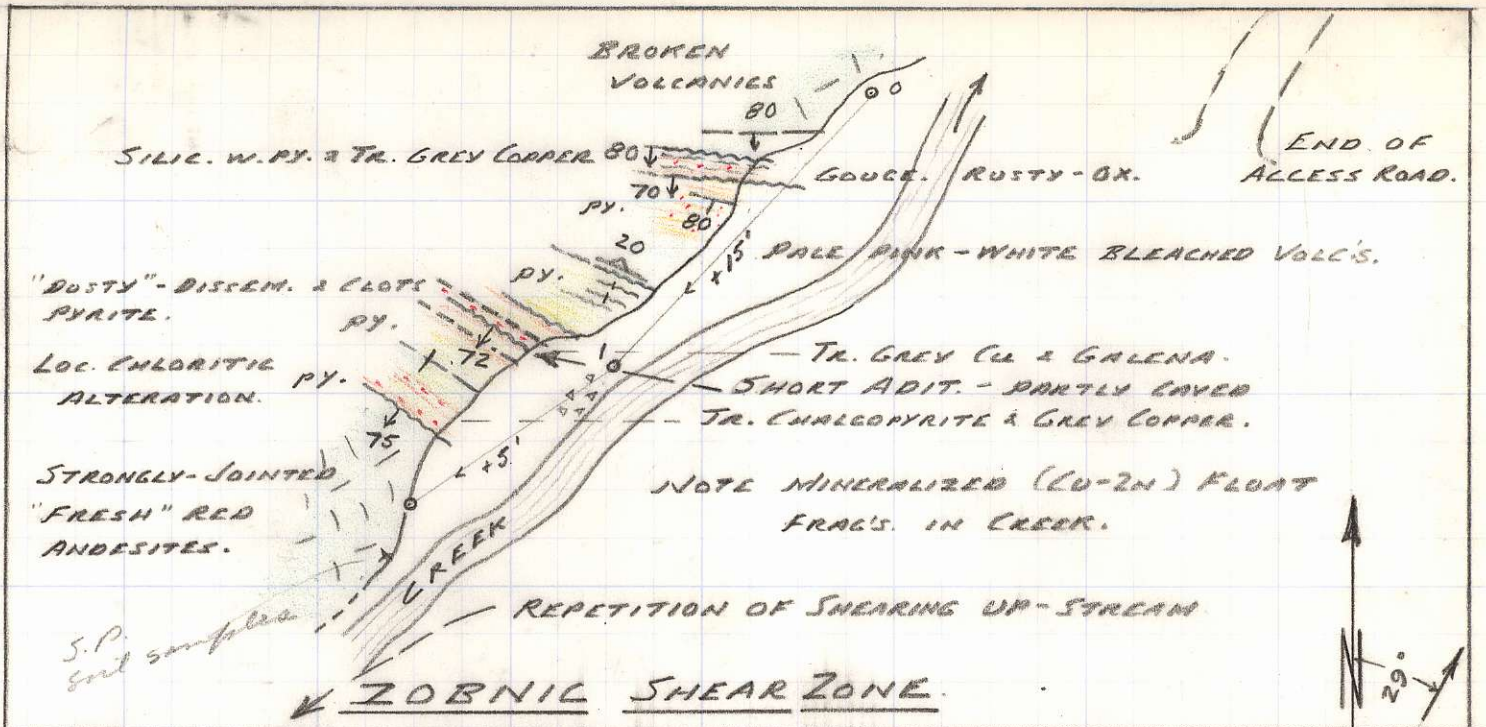 BROKEN
VOLCANICS
80
0
SILIC. W. PY. & TR. GREY COPPER
80
END OF
ACCESS ROAD.
GOUGE.
RUSTY-OX.
70
PY.
80
20
+15'
PALE PINK-WHITE BLEACHED VOLC'S.
PY.
"DUSTY"-DISSEM. & CLOTS
PYRITE.
PY.
72°
1
TR. GREY CU & GALENA.
LOC. CHLORITIC
ALTERATION.
PY.
SHORT ADIT. - PARTLY CAVED
TR. CHALCOPYRITE & GREY COPPER.
75
+5'
STRONGLY-JOINTED
"FRESH" RED
ANDESITES.
NOTE MINERALIZED (CU-ZN) FLOAT
FRAG'S. IN CREEK.
CREEK
REPETITION OF SHEARING UP-STREAM
S.P.
soil samples
ZOBNIC SHEAR ZONE.
N
29°